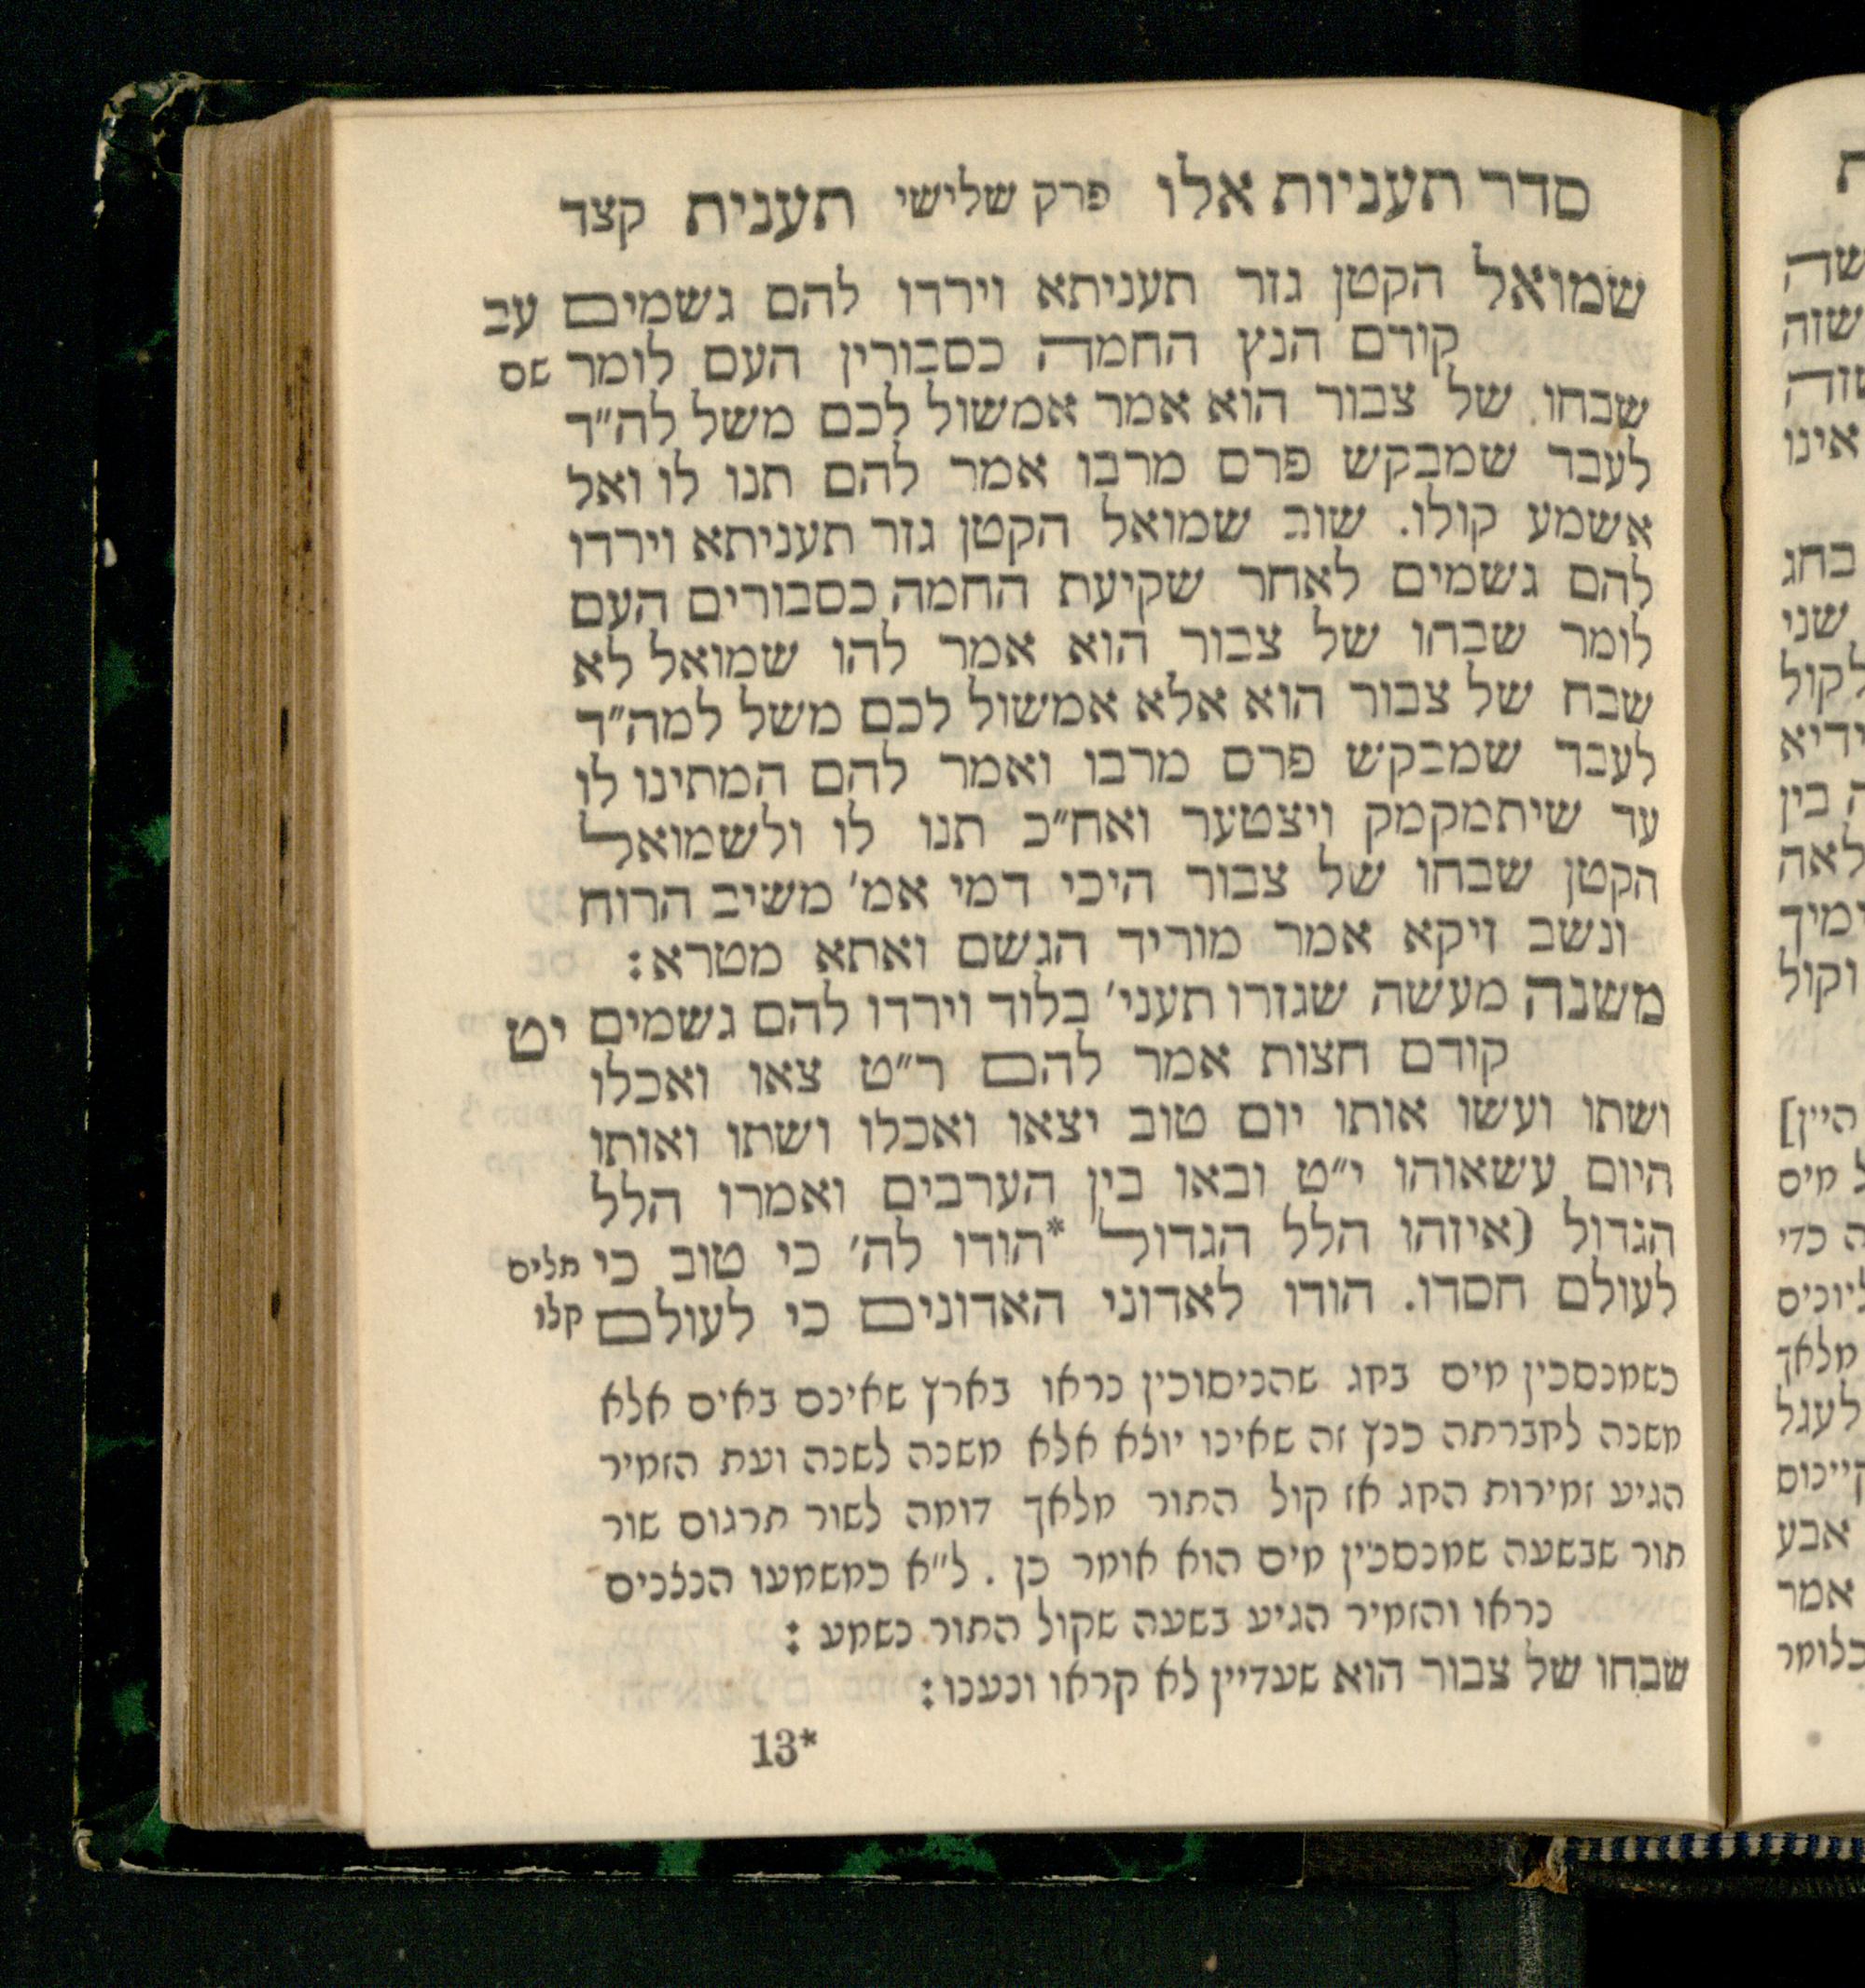 סדר תעניות אלו פרק שלישי תענית קצד
שמואל הקטן גזר תעניתא וירדו להם גשמים עב
קודם הנץ החמה כסבורין העם לומר שם
שבחו של צבור הוא אמר אמשול לכם משל לה״ד
לעבד שמבקש פרס מרבו אמר להם תנו לו ואל
אשמע קולו. שוב שמואל הקטן גזר תעניתא וירדו
להם גשמים לאחר שקיעת החמה כסבורים העם
לומר שבחו של צבור הוא אמר להו שמואל לא
שבח של צבור הוא אלא אמשול לכם משל למה״ד
לעבד שמבקש פרס מרבו ואמר להם המתינו לו
עד שיתמקמק ויצטער ואח״כ תנו לו ולשמואל
הקטן שבחו של צבור היכי דמי אמ׳ משיב הרוח
ונשב זיקא אמר מוריד הגשם ואתא מטרא:
משנה מעשה שגזרו תעני׳ בלוד וירדו להם גשמים יט
קודם חצות אמר להם ר״ט צאו ואכלו
ושתו ועשו אותו יום טוב יצאו ואכלו ושתו ואותו
היום עשאוהו י״ט ובאו בין הערבים ואמרו הלל
הגדול (איזהו הלל הגדול *הודו לה׳ כי טוב כי תלים
לעולם חסדו. הודו לאדוני האדונים כי לעולם קלו
כשמנסכין מים בחג שהניסוכין נראו בארץ שאינם באים אלא
משנה לחברתה כנץ זה שאינו יוצא אלא משנה לשנה ועת הזמיר
הגיע זמירות החג אז קול התור מלאך דומה לשור תרגום שור
תור שבשעה שמנסכין מים הוא אומר כן . ל״א כמשמעו הנצנים
נראו והזמיר הגיע בשעה שקול התור נשמע :
שבחו של צבור הוא שעדיין לא קראו ונענו:
13*
ת
שה
שזה
שזה
אינו
בחג
שני
לקול
ידיא
ה בין
לאה
ומיך
וקול
היין]
ל מים
ה כדי
ניוכים
מלאך
לעגל
קייכום
אבע
אמר
כלומר